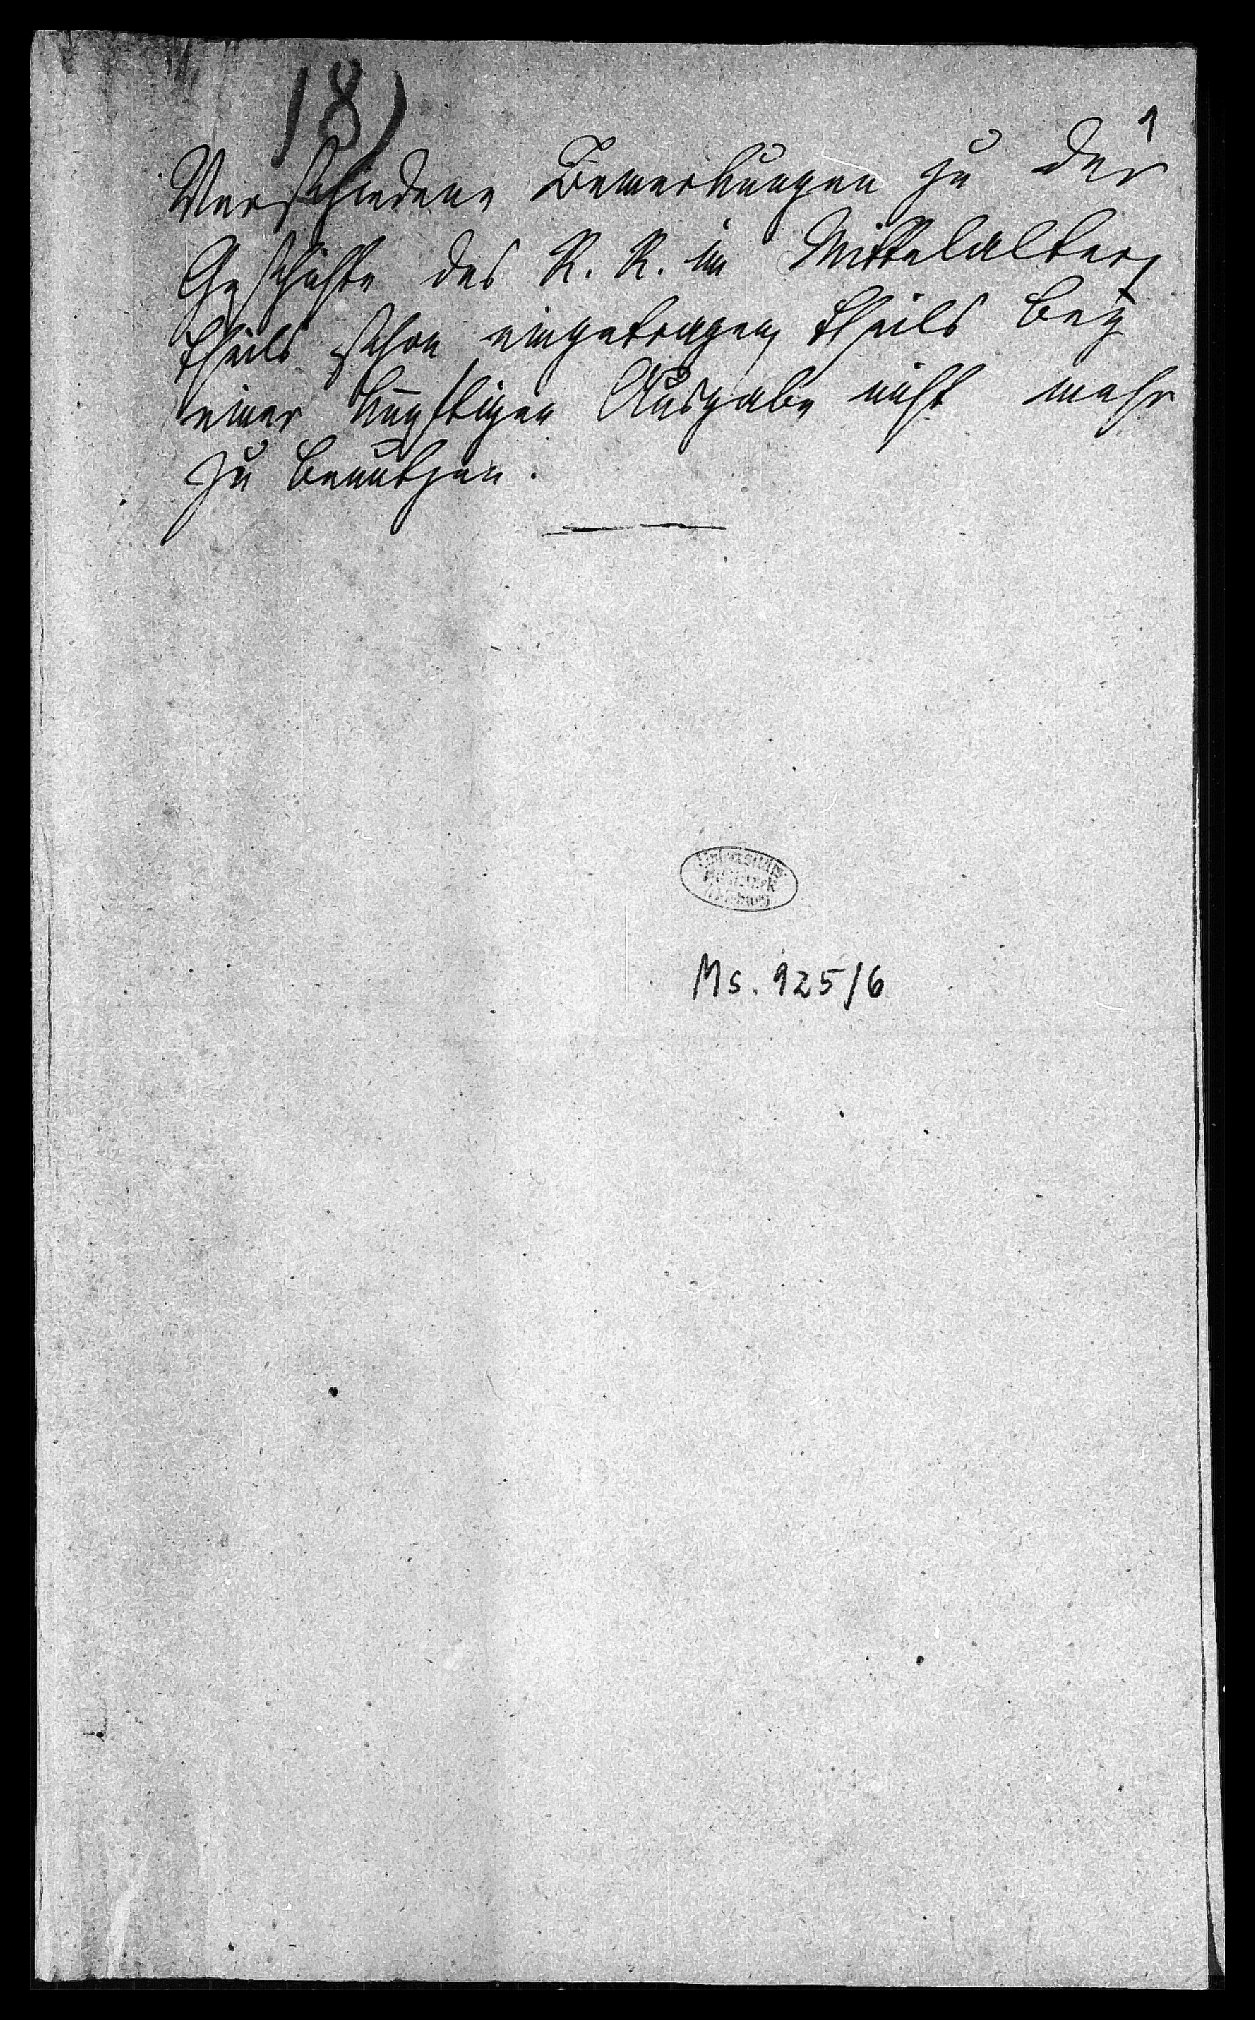 18)
1
Verschiedene Bemerkungen zu der
Geschichte des R. R. im Mittelalter,
theils schon eingetragen, theils bey
einer künftigen Ausgabe nicht mehr
zu benutzen.
Universitäts
Bibliothek
Marburg
Ms. 925/6